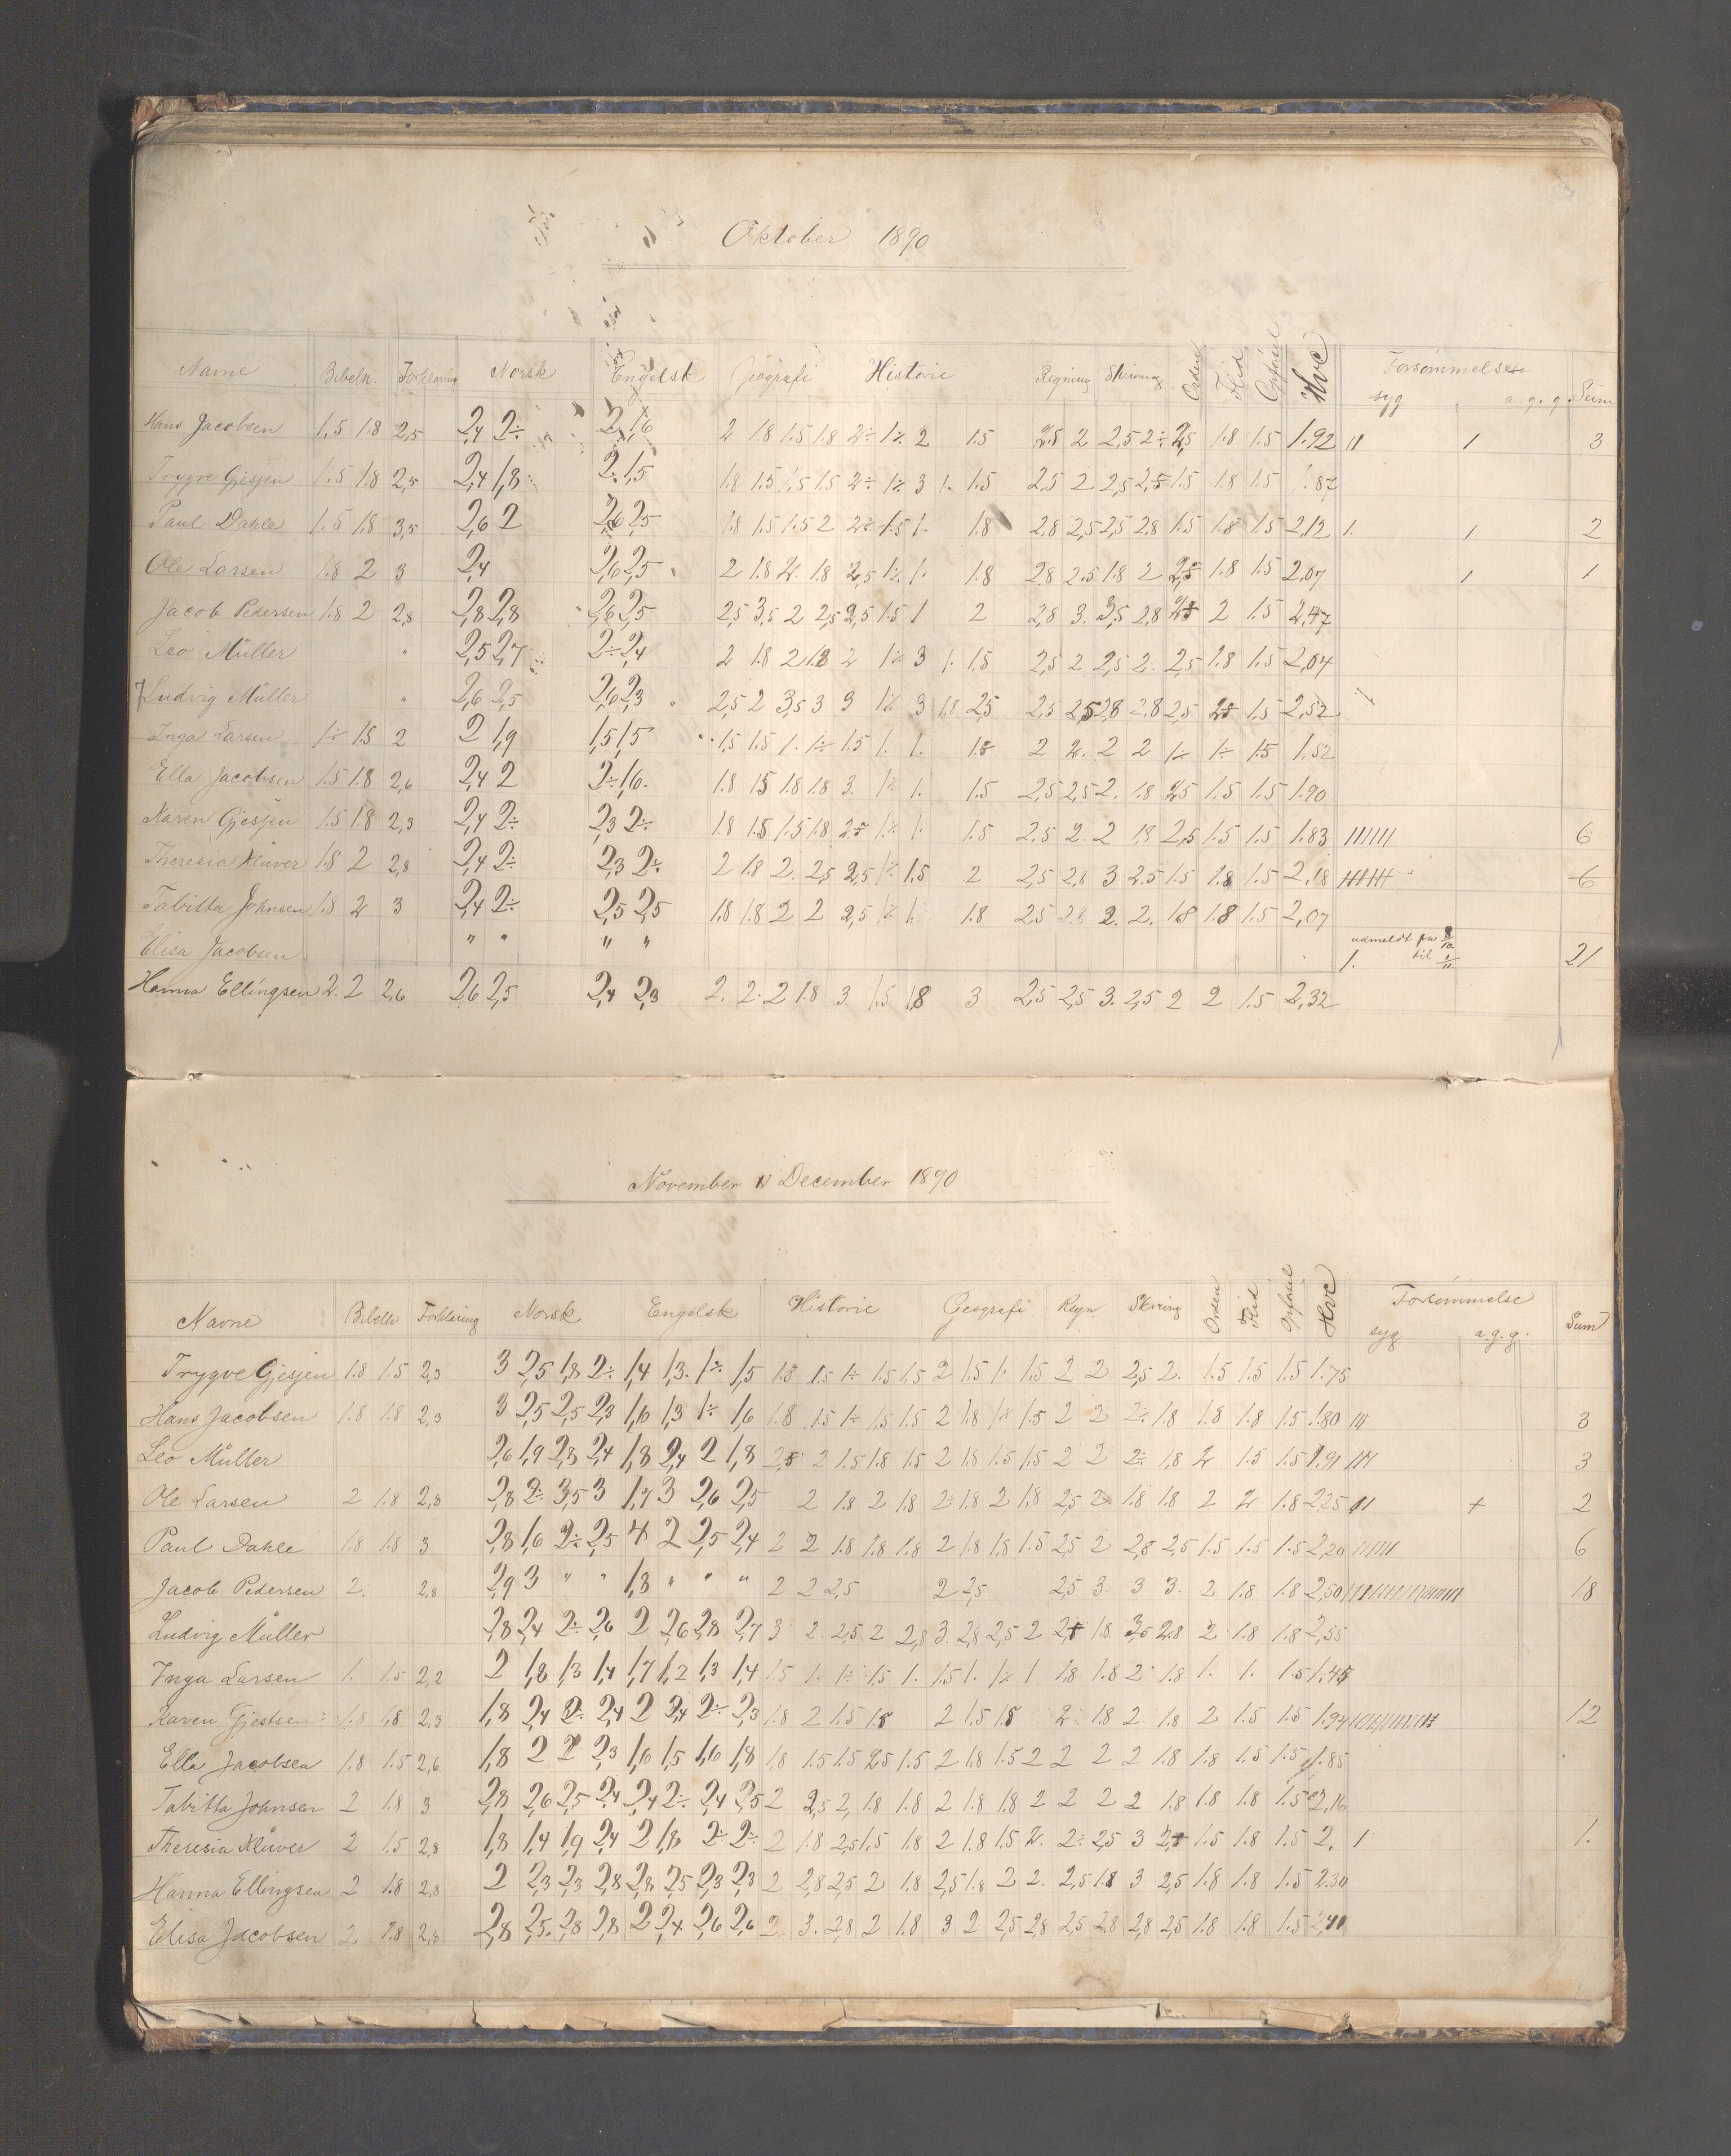 Oktober 1890
Navne Bibelh. Forklaring Norsk Engelsk Geografi Historie Regning Skrivning Orden Flid Opførsel Hvc Forsømmelser Sum
syg a. g. g.
Hans Jacobsen 1.5 1.8 2,5 2,4 2÷ 2 1,6 2 1.8 1.5 1.8 2÷ 1÷ 2 1.5 2.8 2 2,5 2÷ 2,5 1.8 1.5 1.92 11 1 3
Trygve Gjesjen 1.5 1.8 2,5 2,4 1,8 2. 1,5 1.8 1.5 1.5 1.5 2÷ 1÷ 3 1. 1.5 2,5 2 2,5 2,5 1.5 1.8 1.5 1.82
Paul Dahle 1.5 1.8 3,5 2,6 2 2,6 2,5 1.8 1.5 1.5 2 2÷ 1.5 1. 1.8 2.8 2,5 2,5 2.8 1.5 1.8 1.5 2,12 1. 1 2
Ole Larsen 1.8 2 3 2,4 2,6 2,5 2 1.8 2. 1.8 2,5 1÷ 1. 1.8 2.8 2.5 1.8 2 2,5 1.8 1.5 2,07 1 1
Jacob Pedersen 1.8 2 2,8 2,8 2,8 2,6 2,5 2,5 3,5 2 2,5 2,5 1.5 1 2 2,8 3. 3,5 2,8 2,5 2 1.5 2,47
Leo Müller " 2,5 2,7 2÷ 2,4 2 1.8 2 1.8 2 1÷ 3 1. 1.5 2,5 2 2,5 2. 2,5 1.8 1.5 2,04
Ludvig Müller " 2,6 2,5 2,6 2,3 2,5 2 3,5 3 3 1÷ 3 1.8 2,5 2,5 2,5 2,8 2.8 2,5 2,5 1.5 2,52
Inga Larsen 1÷ 1.5 2 2 1,9 1,5 1,5 1,5 1.5 1. 1÷ 1.5 1. 1. 1.8 2 2. 2 2 1÷ 1÷ 1.5 1,52
Ella Jacobsen 1.5 1.8 2,6 2,4 2 2÷ 1,6. 1.8 1.5 1.8 1.8 3. 1÷ 1. 1.5 2,5 2,5 2. 1.8 2,5 1.5 1.5 1.90
Karen Gjesjen 1.5 1.8 2,3 2,4 2÷ 2,3 2÷ 1.8 1.5 1.5 1.8 2,5 1÷ 1. 1.5 2.5 2. 2 1.8 2,5 1.5 1.5 1.83 111111 6
Theresia Klüver 1.8 2 2,8 2,4 2÷ 2,3 2÷ 2 1.8 2. 2,5 2,5 1÷ 1.5 2 2,5 2,8 3 2.5 1.5 1.8 1.5 2,18 111111 6
Tabitta Johnsen 1.8 2 3 2,4 2÷ 2,5 2,5 1.8 1.8 2 2 2,5 1÷ 1. 1.8 2.5 2.8 2. 2. 1.8 1.8 1.5 2,07
Elisa Jacobsen " " " " udmeldt fra 8/10 til 1/11 1. 21
Hanna Ellingsen 2. 2 2,6 2,6 2,5 2,4 2,3 2. 2. 2 1.8 3. 1.5 1,8 3 2,5 2,5 3. 2,5 2 2 1.5 2,32
November & December 1890
Navne Bibelh Forklaring Norsk Engelsk Historie Geografi Regn. Skrivning Orden Flid Opførsel Hvc Forsømmelse Sum
syg a. g. g.
Trygve Gjesjen 1.8 1.5 2,3 3 2,5 1,8 2÷ 1,4 1,3. 1÷ 1,5 1.8 1.5 1÷ 1.5 1.5 2 1.5 1. 1.5 2 2 2,5 2. 1.5 1.5 1.5 1.75
Hans Jacobsen 1.8 1.8 2,3 3 2,5 2,5 2,3 1,6 1,3 1÷ 1,6 1.8 1.5 1÷ 1.5 1.5 2 1.8 1÷ 1.5 2 2 2÷ 1.8 1.8 1.8 1.5 1.80 111 3
Leo Müller 2,6 1,9 2,8 2,4 1,8 2,4 2 1,8 2,5 2 1.5 1.8 1.5 2 1.8 1.5 1.5 2 2 2÷ 1,8 2 1.5 1.5 1.91 111 3
Ole Larsen 2 1.8 2,8 2,8 2÷ 3,5 3 1,7 3 2,6 2,5 2 1.8 2 1.8 2÷ 1.8 2 1.8 2,5 2 1.8 1.8 2 2 1.8 2.25 11 + 2
Paul Dahle 1.8 1.8 3 2,8 1,6 2÷ 2,5 4 2 2,5 2,4 2 2 1.8 1.8 1.8 2 1.8 1.8 1.5 2,5 2 2,8 2,5 1.5 1.5 1.5 2,20 111111 6
Jacob Pedersen 2. 2,8 2,9 3 " " 1,8 " " " 2 2 2,5 2 2,5 2,5 3. 3 3. 2 1.8 1.8 2,50 111111111111111111 18
Ludvig Müller 2,8 2,4 2÷ 2,6 2 2,6 2,8 2,7 3 2. 2,5 2 2,8 3. 2,8 2,5 2 2,5 1.8 3,5 2.8 2 1.8 1.8 2,55
Inga Larsen 1. 1.5 2,2 2 1,8 1,3 1,4 1,7 1,2 1,3 1,4 1.5 1. 1÷ 1.5 1. 1.5 1. 1÷ 1 1.8 1.8 2 1.8 1. 1. 1.5 1.45
Karen Gjestsen 1.8 1,8 2,3 1,8 2,4 2÷ 2,4 2 2,4 2÷ 2,3 1.8 2 1.5 1.8 2 1.5 1.8 2 1.8 2 1.8 2 1.5 1.5 1.94 111111111111 12
Ella Jacobsen 1.8 1.5 2,6 1,8 2 2 2,3 1,6 1,5 1,6 1,8 1,8 1.5 1.5 2,5 1.5 2 1.8 1.5 2 2 2 2 1.8 1.8 1.5 1.5 1.85
Tabitta Johnsen 2 1.8 3 2,8 2,6 2,5 2,4 2,4 2÷ 2,4 2,5 2 2,5 2, 1.8 1.8 2 1.8 1.8 2 2 2 2 1.8 1.8 1.8 1.5 2,16
Theresia Klüver 2 1.5 2,8 1,8 1,4 1,9 2,4 2 1,8 2÷ 2÷ 2 1.8 2,5 1.5 1.8 2 1.8 1.5 2. 2÷ 2,5 3 2,5 1.5 1.8 1.5 2. 1 1.
Hanna Ellingsen 2 1.8 2,8 2 2,3 2,3 2,8 2,8 2,5 2,3 2,3 2 2,8 2,5 2 1.8 2,5 1.8 2 2. 2,5 1.8 3 2,5 1.8 1.8 1.5 2.30
Elisa Jacobsen 2 1.8 2,8 2,8 2,5. 2,8 2,8 2 2,4 2,6 2,6 2. 3. 2,8 2 1.8 3 2 2,5 2,8 2,5 2.8 2,8 2,5 1.8 1.8 1.5 2,40